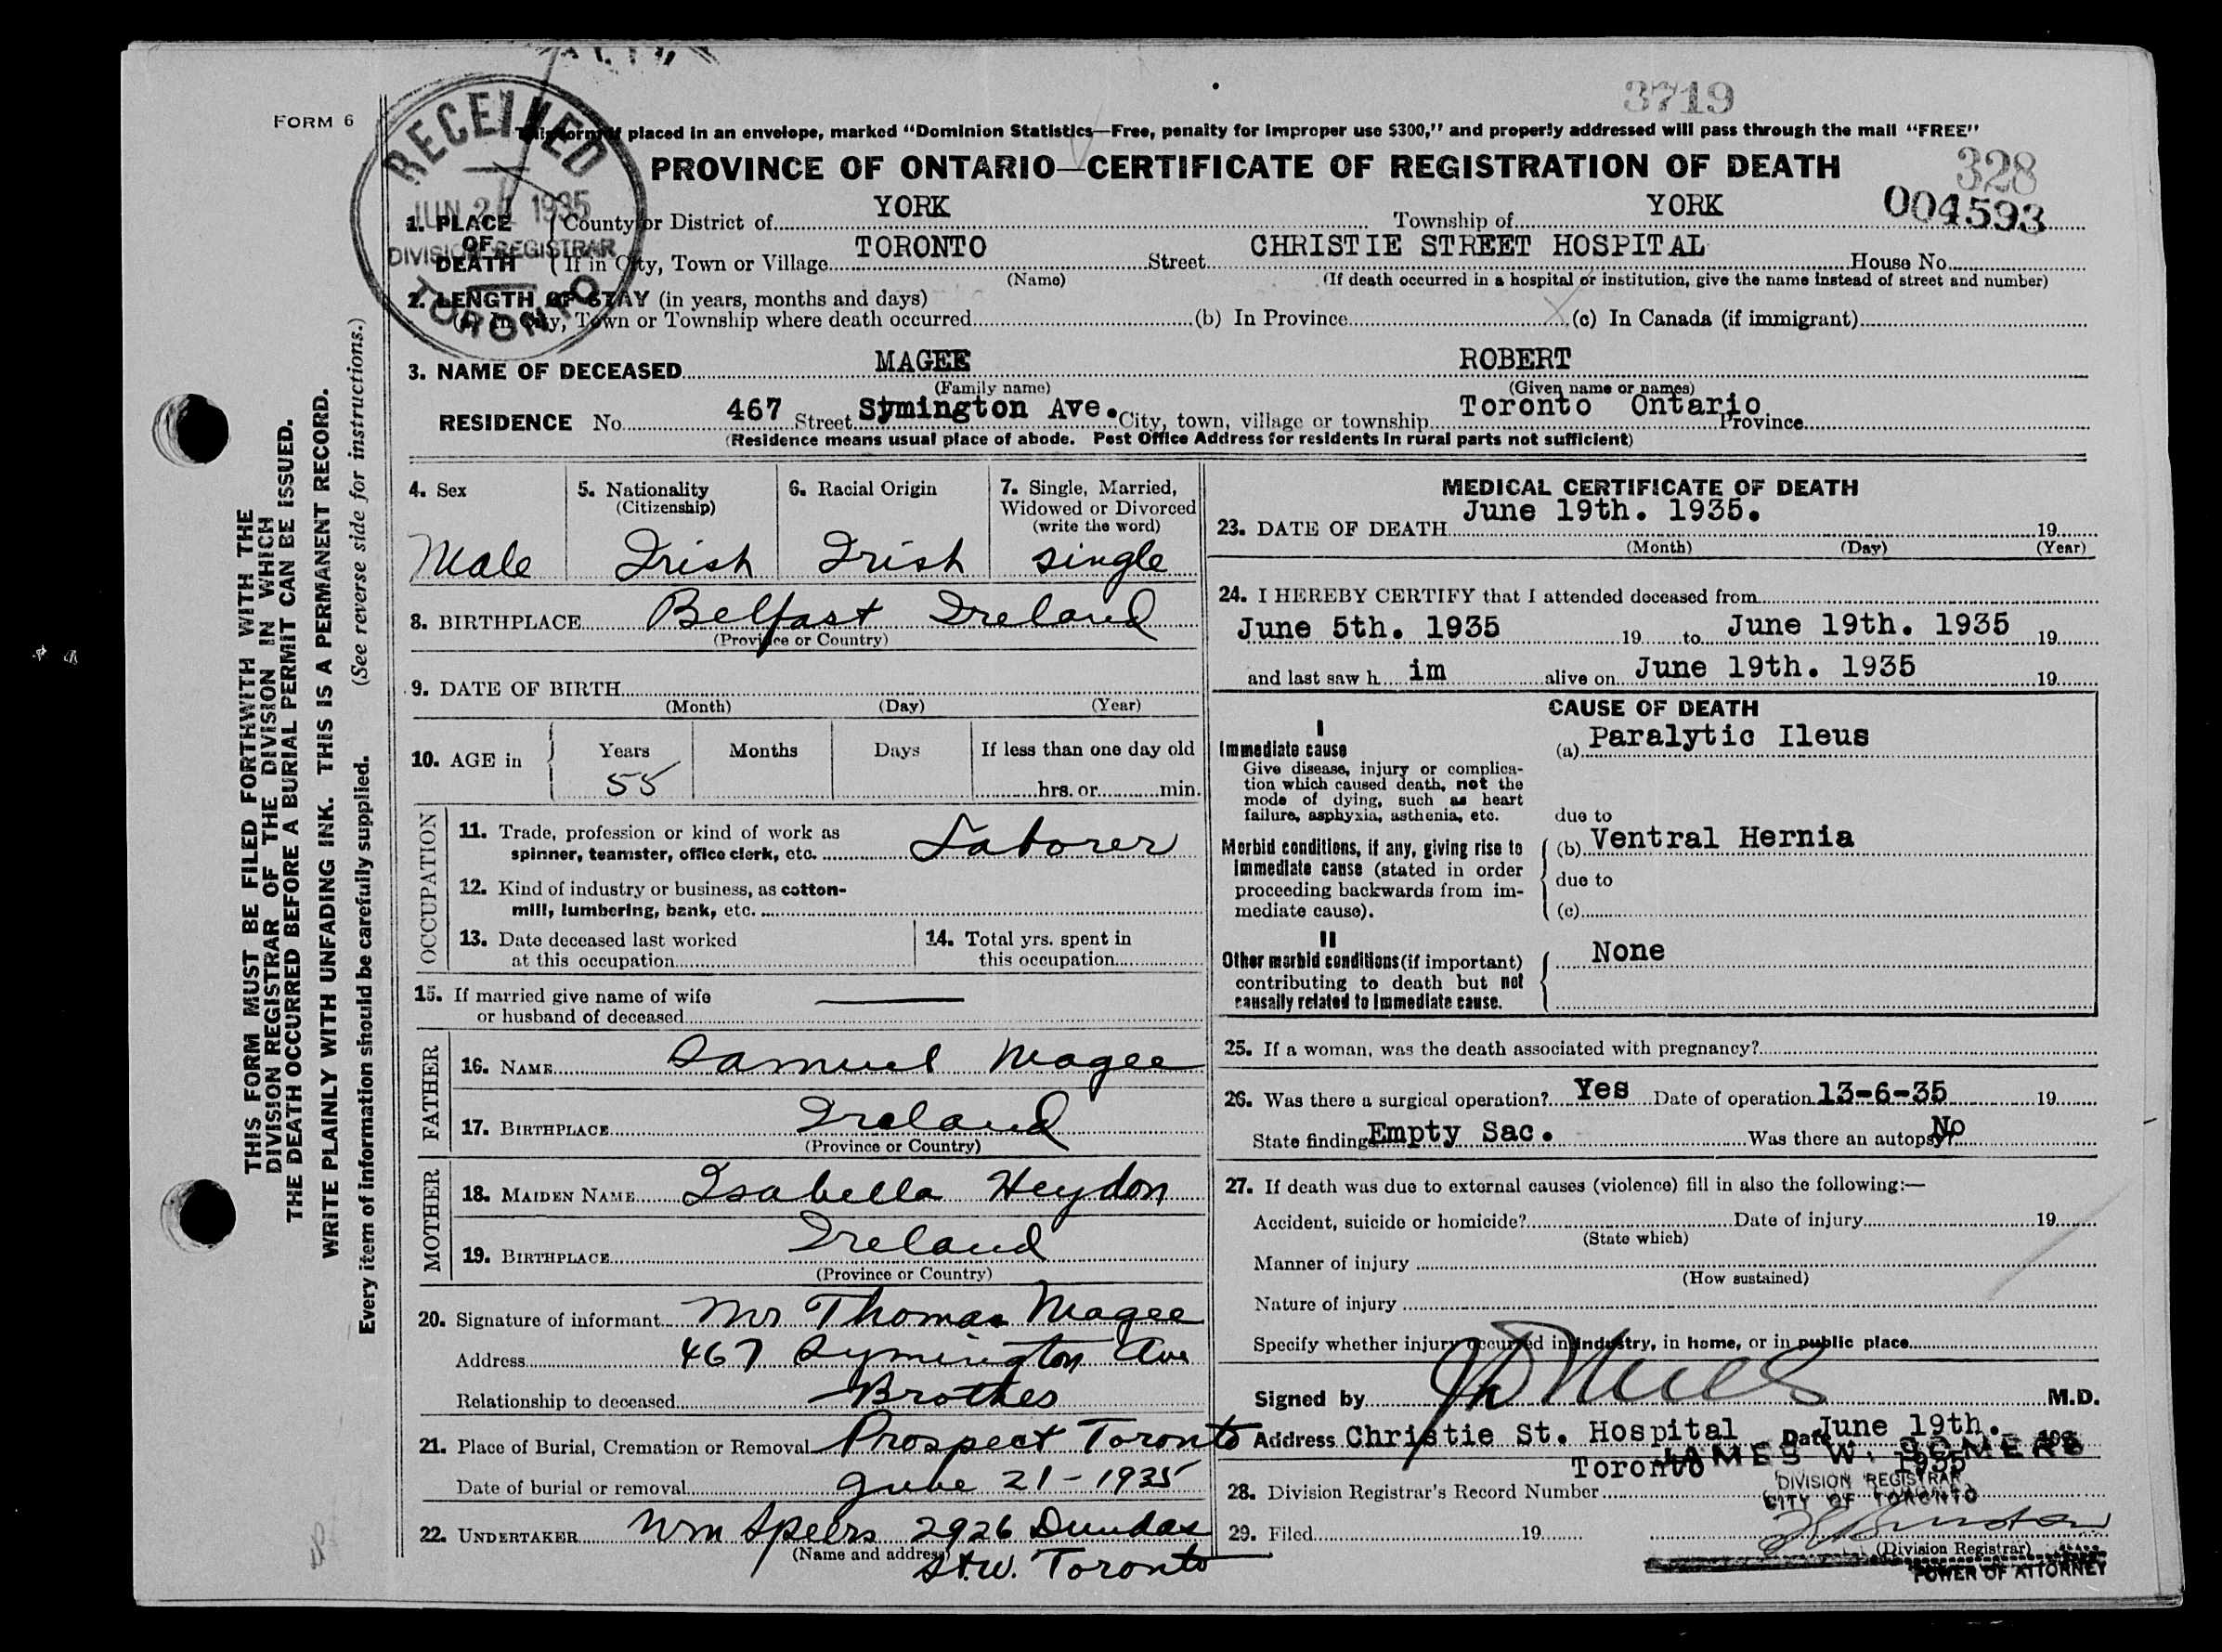 3719
FORM 6
This form if placed in an envelope, marked "Dominion Statistics—Free, penalty for improper use $300," and properly addressed will pass through the mail "FREE"
PROVINCE OF ONTARIO—CERTIFICATE OF REGISTRATION OF DEATH
328
004593
RECEIVED
JUN 21 1935
DIVISION REGISTRAR
TORONTO
1. PLACE OF DEATH
County or District of YORK Township of YORK
If in City, Town or Village TORONTO Street CHRISTIE STREET HOSPITAL House No.
(Name) (If death occurred in a hospital or institution, give the name instead of street and number)
2. LENGTH OF STAY (in years, months and days)
(a) In City, Town or Township where death occurred (b) In Province (c) In Canada (if immigrant)
3. NAME OF DECEASED MAGEE ROBERT
(Family name) (Given name or names)
RESIDENCE No. 467 Street Symington Ave. City, town, village or township Toronto Ontario Province
(Residence means usual place of abode. Post Office Address for residents in rural parts not sufficient)
THIS FORM MUST BE FILED FORTHWITH WITH THE
DIVISION REGISTRAR OF THE DIVISION IN WHICH
THE DEATH OCCURRED BEFORE A BURIAL PERMIT CAN BE ISSUED.
WRITE PLAINLY WITH UNFADING INK. THIS IS A PERMANENT RECORD.
Every item of information should be carefully supplied. (See reverse side for instructions.)
4. Sex
Male
5. Nationality
(Citizenship)
Irish
6. Racial Origin
Irish
7. Single, Married,
Widowed or Divorced
(write the word)
single
8. BIRTHPLACE Belfast Ireland
(Province or Country)
9. DATE OF BIRTH
(Month) (Day) (Year)
10. AGE in Years Months Days If less than one day old
55 hrs. or min.
OCCUPATION
11. Trade, profession or kind of work as
spinner, teamster, office clerk, etc. Laborer
12. Kind of industry or business, as cotton-
mill, lumbering, bank, etc.
13. Date deceased last worked
at this occupation
14. Total yrs. spent in
this occupation
15. If married give name of wife
or husband of deceased
FATHER
16. NAME Samuel Magee
17. BIRTHPLACE Ireland
(Province or Country)
MOTHER
18. MAIDEN NAME Isabella Heydon
19. BIRTHPLACE Ireland
(Province or Country)
20. Signature of informant Mr Thomas Magee
Address 467 Symington Ave
Relationship to deceased Brother
21. Place of Burial, Cremation or Removal Prospect Toronto
Date of burial or removal June 21-1935
22. UNDERTAKER Wm Speers 2926 Dundas
(Name and address) St. W. Toronto
MEDICAL CERTIFICATE OF DEATH
23. DATE OF DEATH June 19th. 1935. 19
(Month) (Day) (Year)
24. I HEREBY CERTIFY that I attended deceased from
June 5th. 1935 19 to June 19th. 1935 19
and last saw h im alive on June 19th. 1935 19
CAUSE OF DEATH
I
Immediate cause
Give disease, injury or complica-
tion which caused death, not the
mode of dying, such as heart
failure, asphyxia, asthenia, etc.
(a) Paralytic Ileus
due to
Morbid conditions, if any, giving rise to
immediate cause (stated in order
proceeding backwards from im-
mediate cause).
(b) Ventral Hernia
due to
(c)
II
Other morbid conditions (if important)
contributing to death but not
causally related to immediate cause.
None
25. If a woman, was the death associated with pregnancy?
26. Was there a surgical operation? Yes Date of operation 13-6-35 19
State finding Empty Sac. Was there an autopsy? No
27. If death was due to external causes (violence) fill in also the following:—
Accident, suicide or homicide? Date of injury 19
(State which)
Manner of injury
(How sustained)
Nature of injury
Specify whether injury occurred in industry, in home, or in public place
Signed by M.D.
Address Christie St. Hospital Date June 19th. 193
Toronto 1935
JAMES W. SOMERS
DIVISION REGISTRAR
CITY OF TORONTO
28. Division Registrar's Record Number
29. Filed 19
(Division Registrar)
POWER OF ATTORNEY